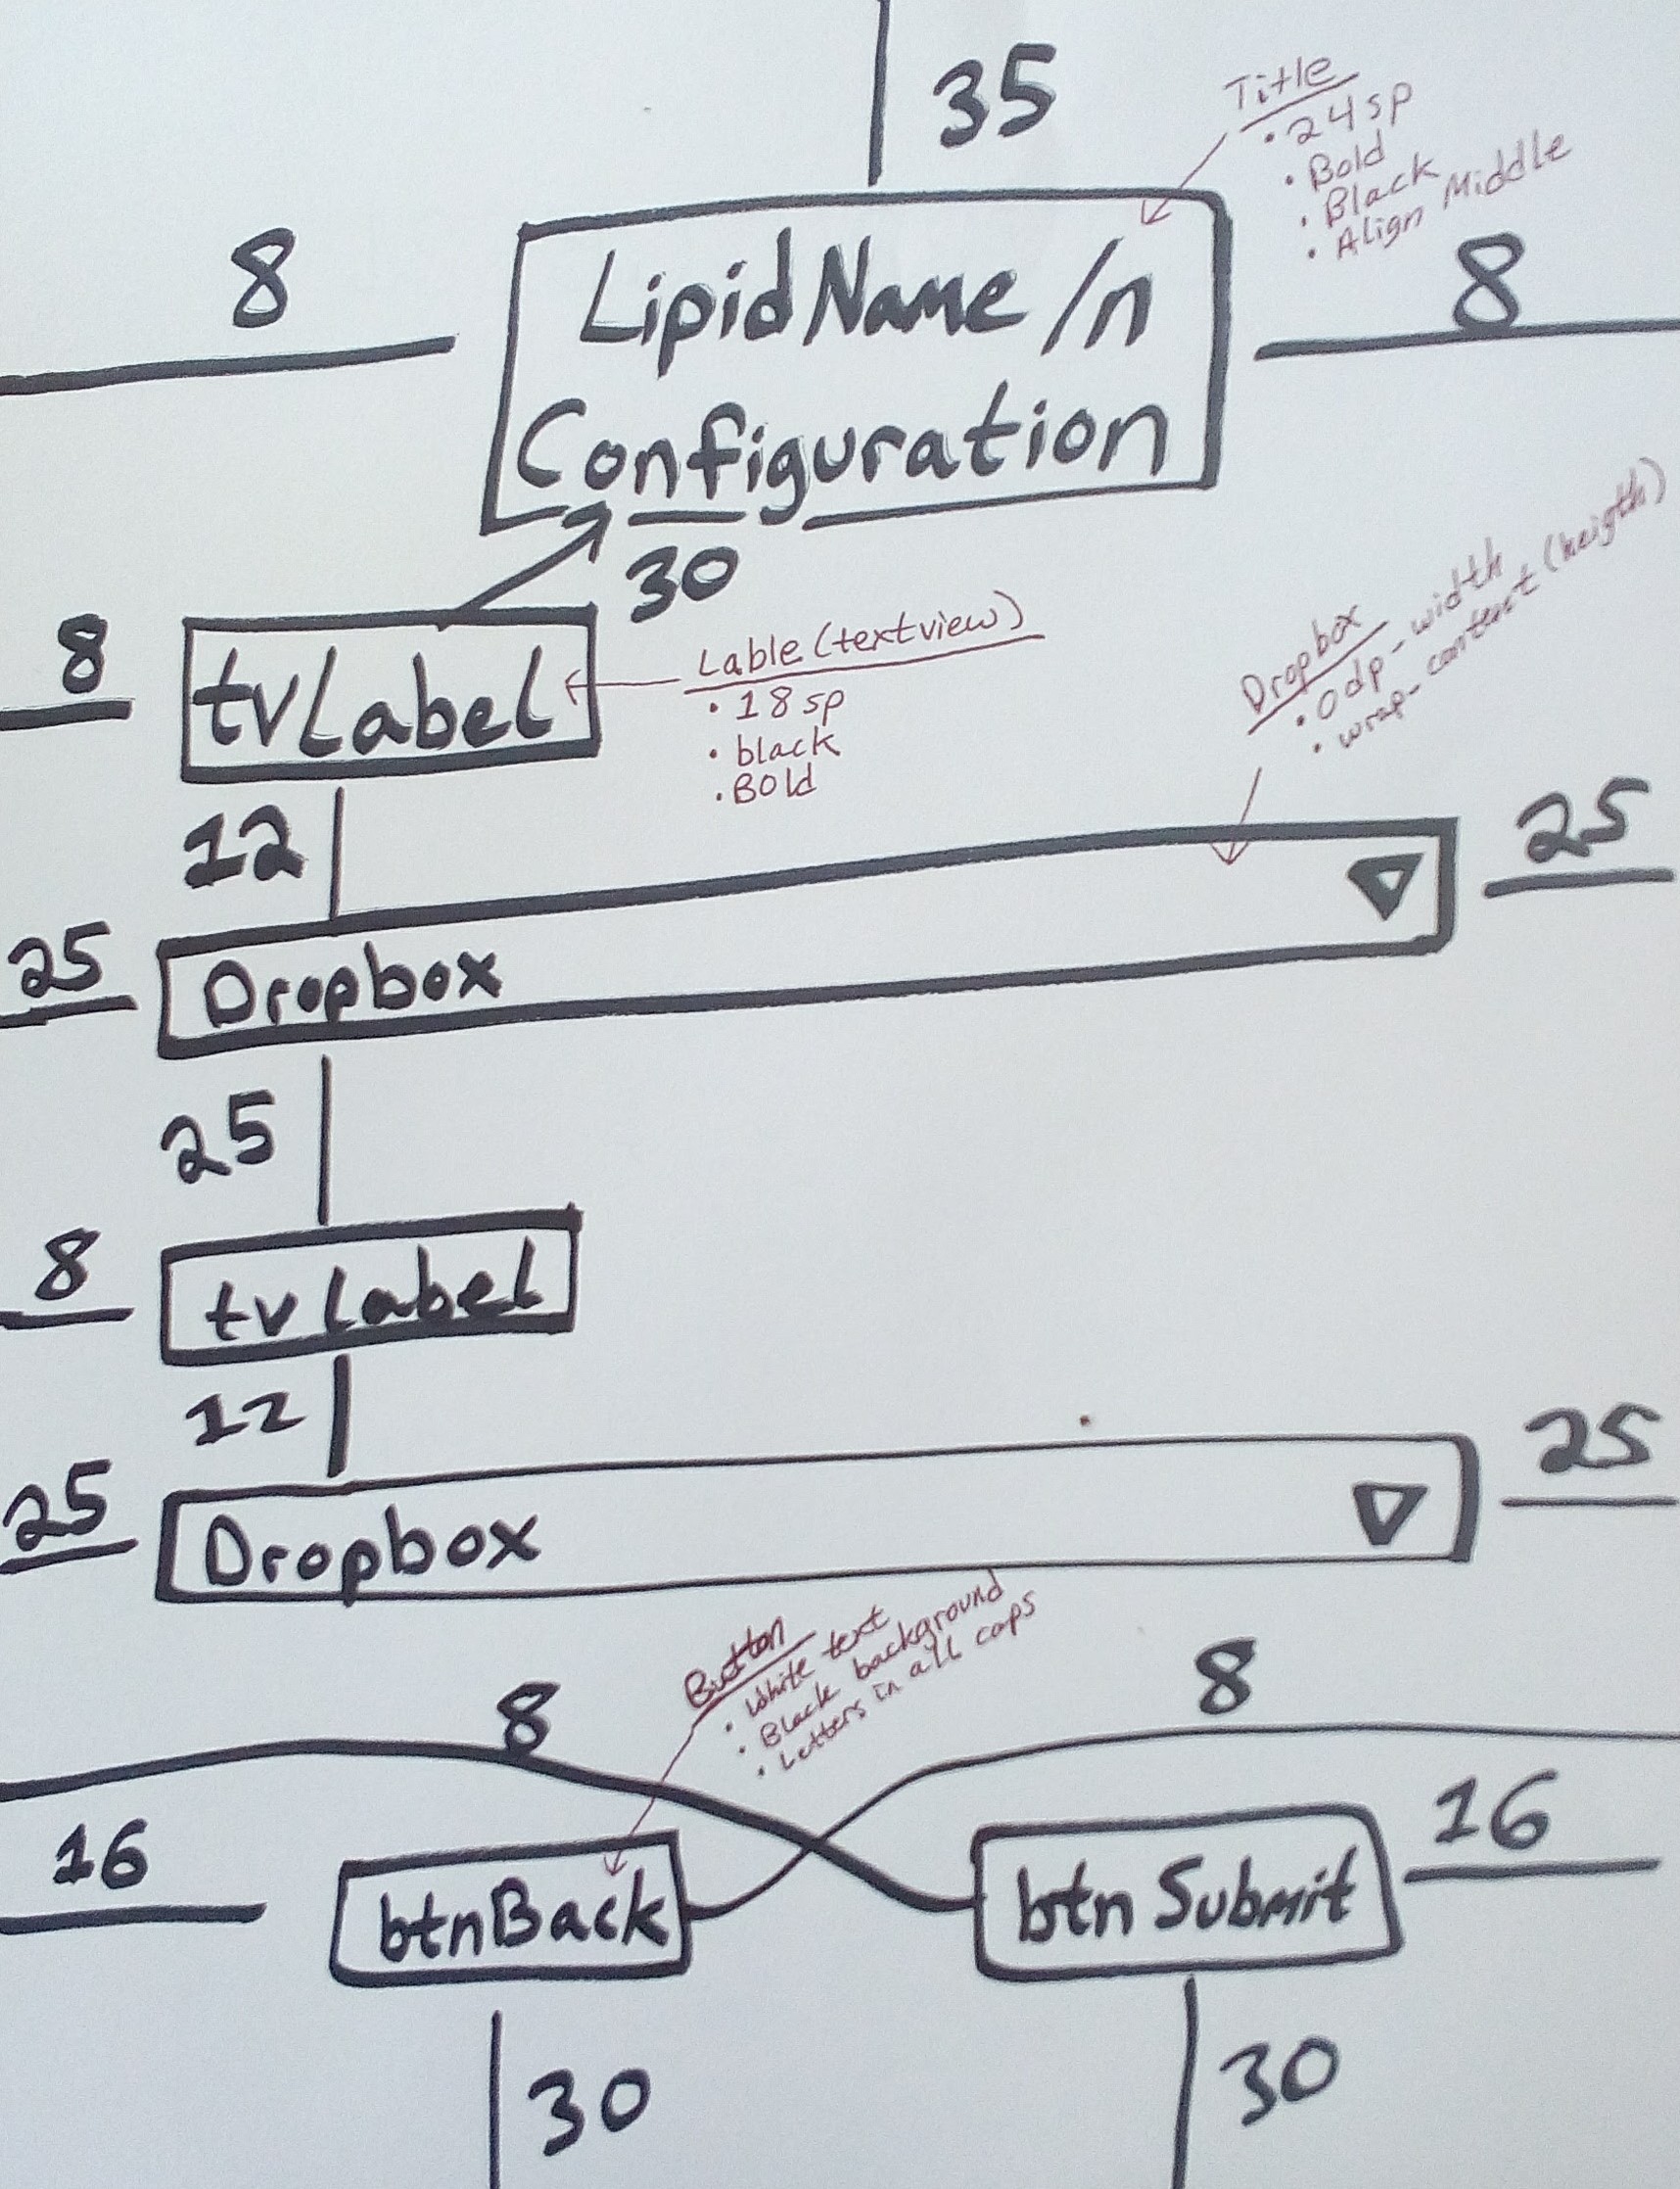 35
Title
• 24sp
• Bold
• Black
• Align Middle
8
LipidName /n
Configuration
8
30
8
tvLabel
Lable (textview)
• 18sp
• black
• Bold
Dropbox
• 0dp - width
• wrap-content (heigth)
12
25
Dropbox
25
25
8
tvLabel
12
25
Dropbox
25
Button
• White text
• Black background
• Letters in all caps
8
8
16
btnBack
btnSubmit
16
30
30